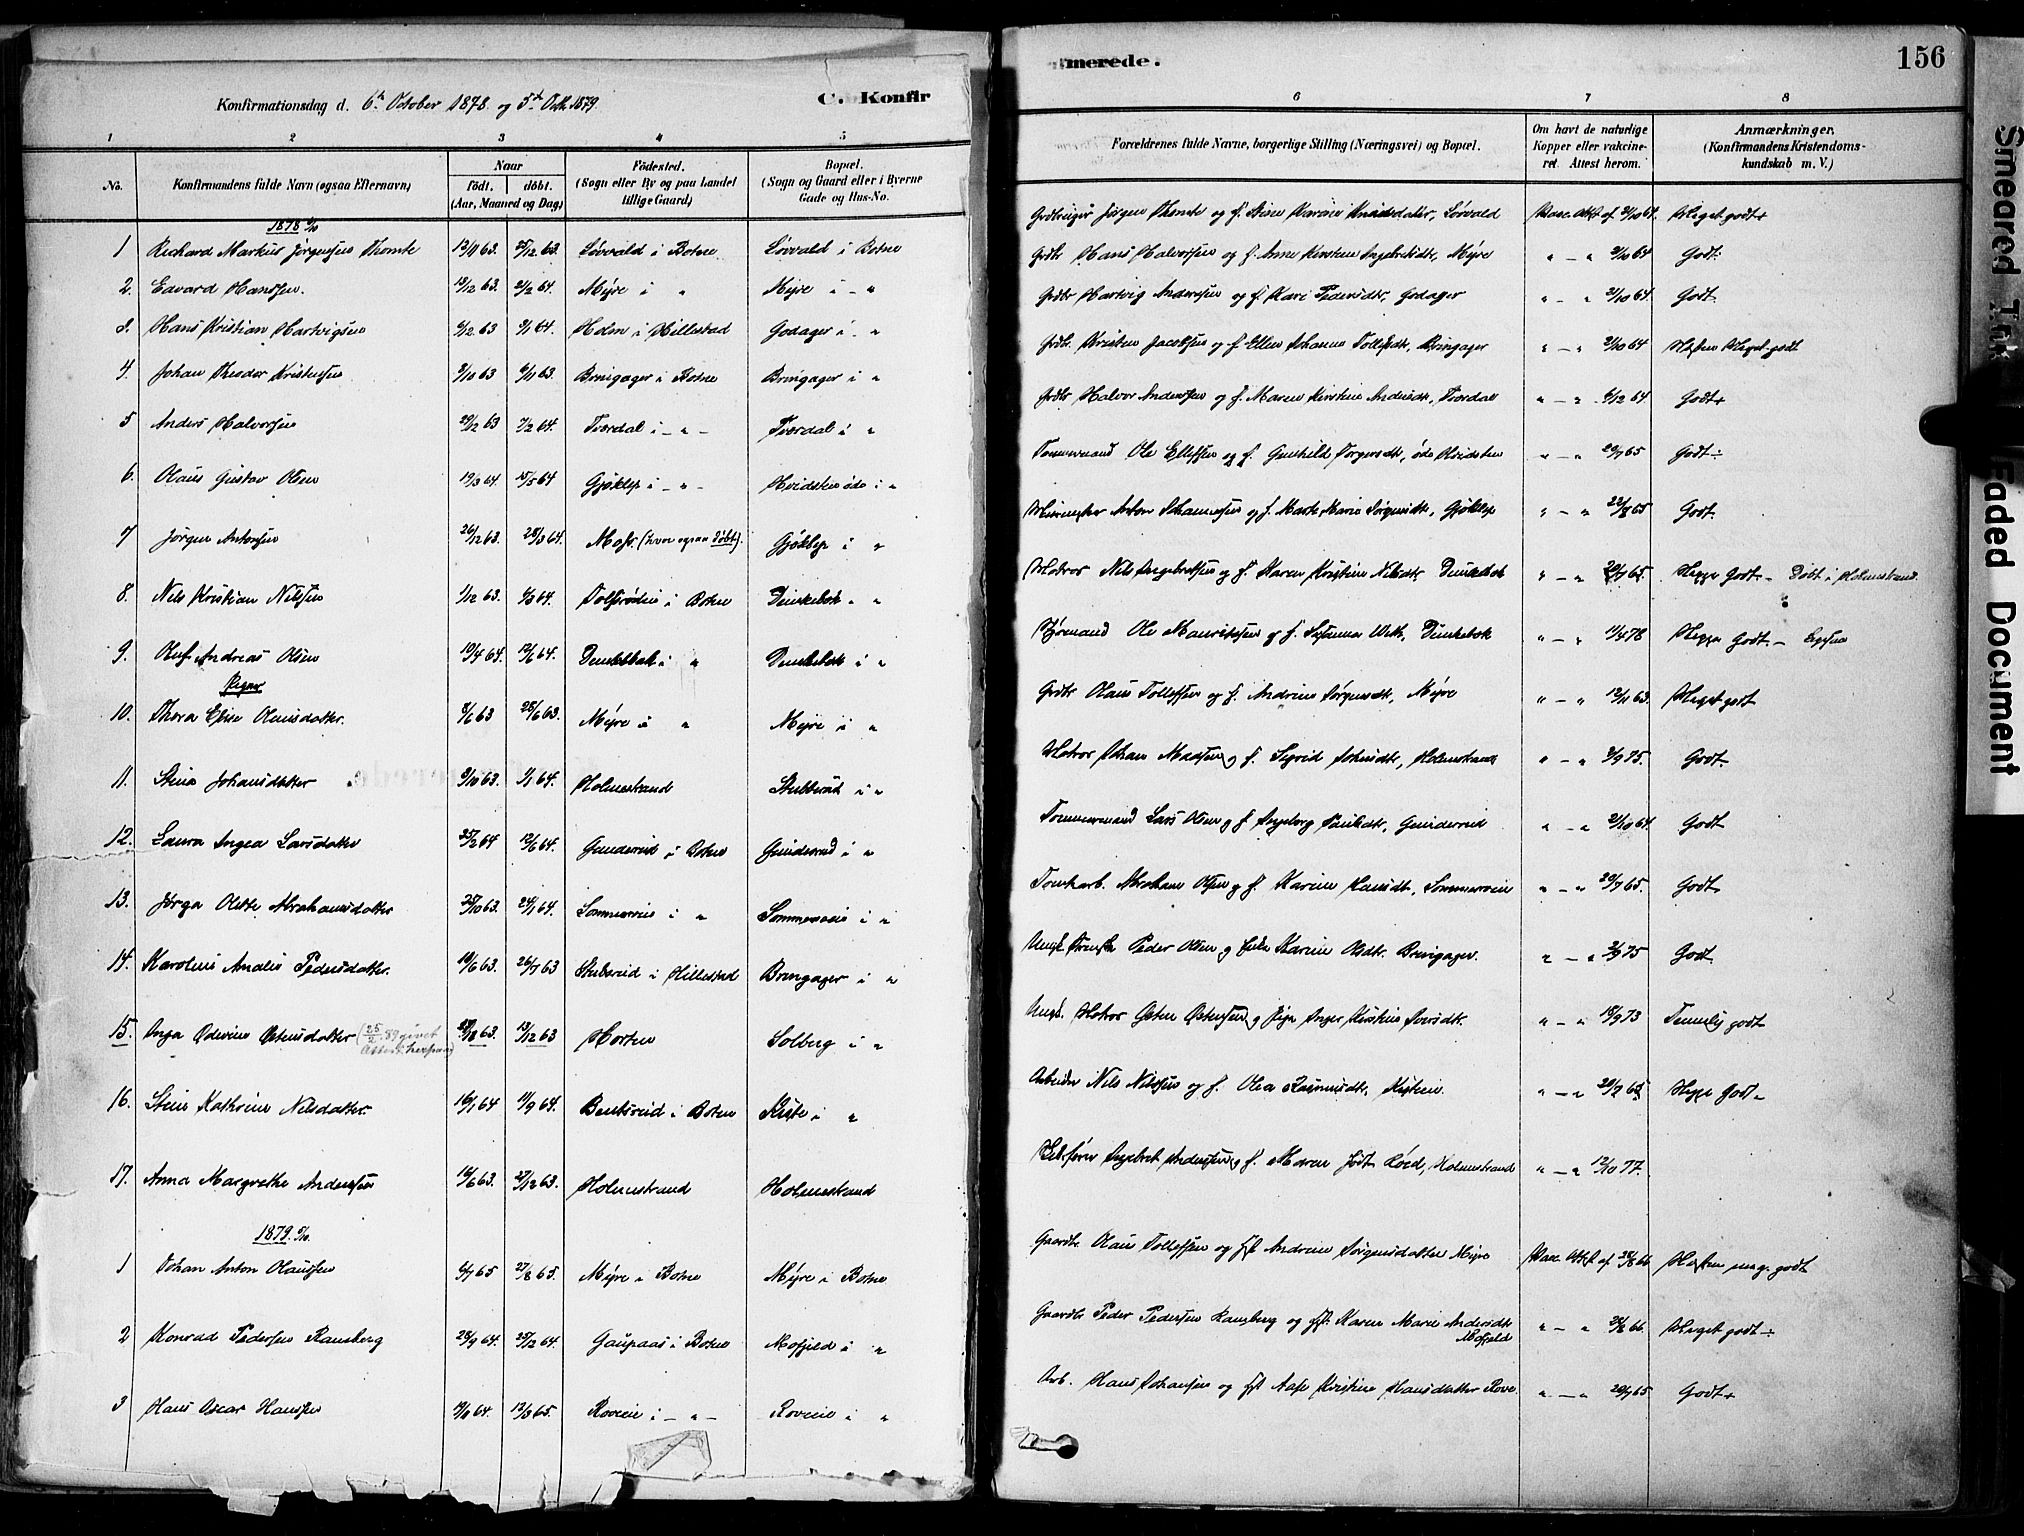 Konfirmationsdag d. 6te October 1878. og 5te Octb. 1879.
C. Konfir
1 2 3 4 5
No.
Konfirmandens fulde Navn (ogsaa Efternavn)
Naar
födt. döbt.
(Aar, Maaned og Dag)
Födested.
(Sogn eller By og paa Landet
tillige Gaard)
Bopæl.
(Sogn og Gaard eller i Byerne
Gade og Hus-No.
1878 6/10
1 Richard Markus Jörgensen Thomte 25/12 63. Lövvald i Botne Lövvald i Botne
2. Edvard Hanssen. 13/12 63 Myre i " Myre i - "
3. Hans Kristian Hartvigsen 6/12 63 Holm i Hillestad Godager i - "
4 Johan Theodor Kristensen 9/10 63 Bringager i Botne Bringager i "
5 Anders Halvorsen 29/12 63 7/2 64. Tverdal i - " - Tverdal i "
6. Olaus Gustav Olsen 19/3 64. 15/5 64 Gjöklep i - " - Hvidsten öde i "
7 Jörgen Antonsen 26/12 63. 28/3 64. Moss. (hvor ogsaa döbt). Gjöklep i "
8. Nels Kristian Nilssen 1/12 63. i Botne "
9. Oluf Andreas Olsen 10/4 64 12/6 64. i " "
Piger
10. Thora Elise Olausdatter. 8/6 63 28/6 63. Myre i " Myre i "
11. Stina Johansdatter 9/10 63. 1/1 64. Holmestrand Stubberud i "
12. Laura Ingea Larsdatter 25/2 64 12/6 64. Gunderud i Botne Gunderud i "
13. Jörga Olette Abrahamsdatter 25/10 63. 24/1 64. Sommerveie i " Sommerveie i "
14. Karoline Amalie Pedersdatter. 18/6 63. 26/7 63 i Hillestad Bringager i "
15. Inga Östensdatter (25/2 89 givet Attest 13/12 63 Horten Solberg i "
16. Stine Kathrine Nilsdatter. 16/1 64 11/9 64. Bentsrud i Botne Kiste i "
17. Anna Margrethe Andersen 14/6 63. 27/12 63. Holmestrand Holmestrand
1879. 5/10.
1 Johan Anton Olaussen 6/7 65 27/8 65. Myre i Botne Myre i Botne
2 Konrad Pedersen Ramberg 28/9 64. 25/12 64. Gaupaas i Botne Mofjeld i "
3 Hans Oscar Hanssen 12/3 65. Roveie i - " - Roveie i "
merede.
156
6 7 8
Forældrenes fulde Navne, borgerlige Stilling (Næringsvei) og Bopæl.
Om havt de naturlige
Kopper eller vakcine-
ret. Attest herom.
Anmærkninger.
(Konfirmandens Kristendoms-
kundskab m. V.)
Jörgen Thomte og f. Karine Knudsdatter, Lövvald Vacc. Att. af 21/10 64. Meget godt +
Grdbr Hans Halvorsen og f. Anne Kirstine Ingebretsdt, Myre " - " 21/10 64 Godt.
Grdbr Hartvig Anderssen og f. Kari Pedersdt, Godager " - " 21/10 64. Godt.
Grdbr. Kristen Jacobsen og f. Ellen Johanne Tollefsdt, Bringager " - " 21/10 64 Næsten Meget godt
Grdbr Halvor Anderssen og f. Maren Kirstine Andersdt, Tverdal " - " 6/12 64 Godt +
Tömmermand Ole Ellefsen og f. Gunhild Torgersdt, öde Hvidsten " - " 29/7 65 Godt ÷
Anton Johannessen og f. Marte Marie Jörgensdt, Gjöklep " - " 22/8 65 Godt.
Matros Nils Ingebretsen og f. Karen Kristine Nilsdt, " - " 29/7 65. Neppe Godt - Döbt i Holmestrand
Sjömand Ole Mauritssen og f. " - " 11/4 78 Neppe Godt -
Grdbr Olaus Tollefsen og f. Andrine Jörgensdt, Myre " - " 12/11 63. Meget godt
Matros Johan Madssen og f. Sigrid Johnsdt, Holmestrand " - " 2/9 75. Godt.
Tömmermand Lars Olsen og f. Ingeborg Paulsdt, Gunderud " - " 21/10 64 Godt
Tomtarb. Abraham Olsen og f. Karine Hansdt, Sommerveie " - " 29/7 65. Godt
Peder Olsen og Karine Olsdt. Bringager. " - " 2/9 75 Godt
Ungk. Matros Östen Östensen og Pige Inger Kirstine Iversdt. " - " 18/9 73 Temmelig godt
Arbeider Nils Nilssen og f. Olea Rasmusdt, " - " 29/7 65 Neppe Godt -
Ingebret Anderssen og f. Maren födt Röed, Holmestrand " - " 12/10 77.
Gaardbr. Olaus Tollefssen og Andrine Jörgensdatter Myre Vacc. Att. af 28/8 66 Næsten meg. godt
Gaardbr Peder Pedersen Ramberg og Karen Marie Andersdtr Mofjeld " - " 28/8 66. Meget godt ÷
Arb. Hans Johansen og Aase Kristine Hansdatter Rove. " - " 29/7 65 Godt +
Smeared Ink
Faded Document